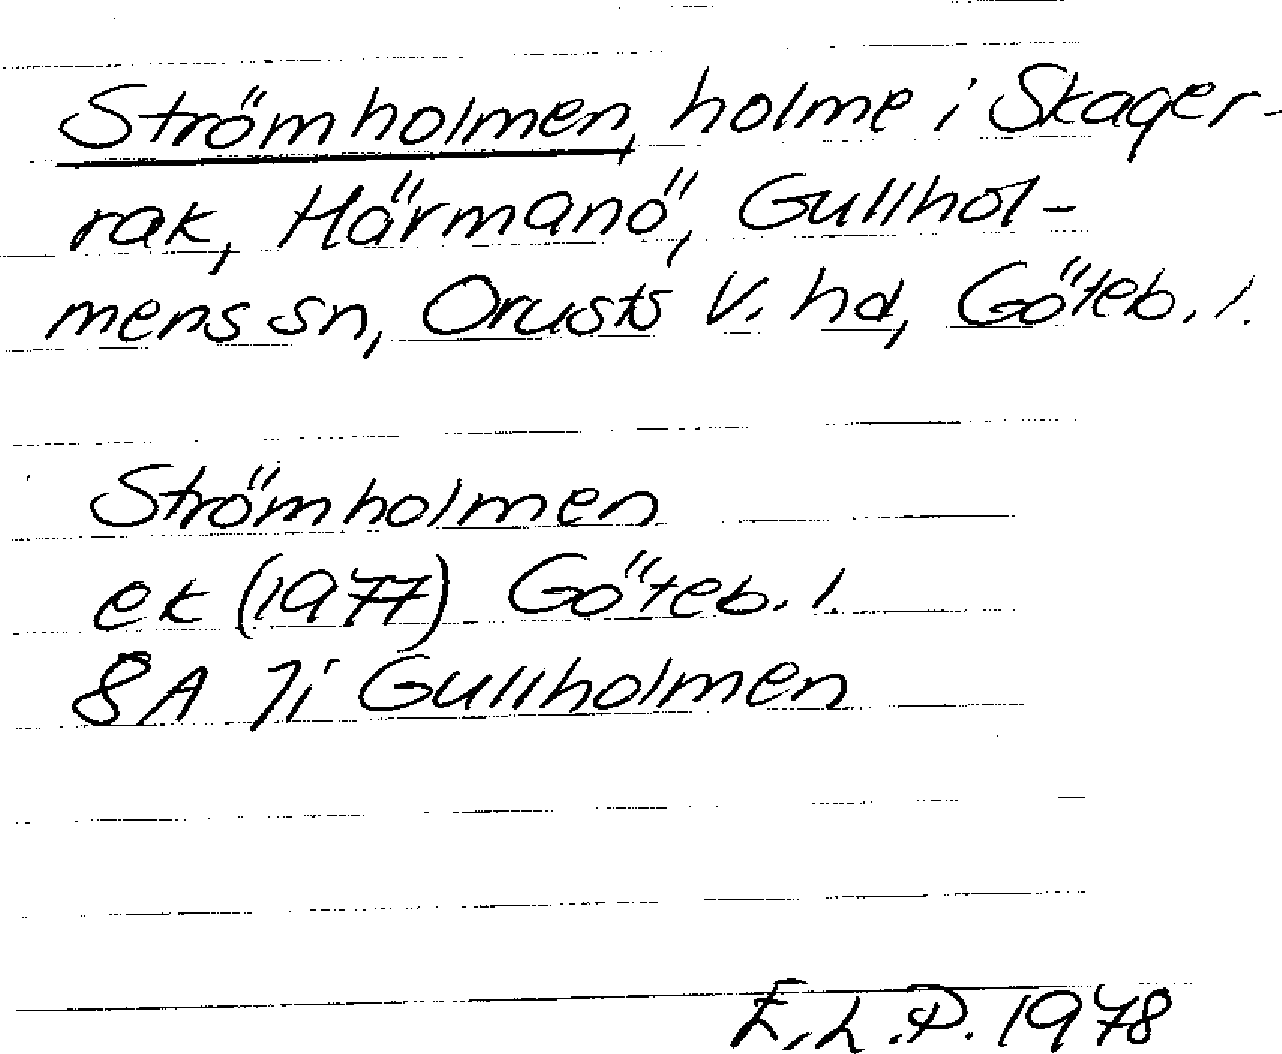 Strömholmen, holme i Skager-
rak, Härmanö, Gullhol-
mens sn, Orusts V. hd, Göteb. l.
Strömholmen
ek (1977) Göteb. l.
8A 7i Gullholmen
E.L.P. 1978